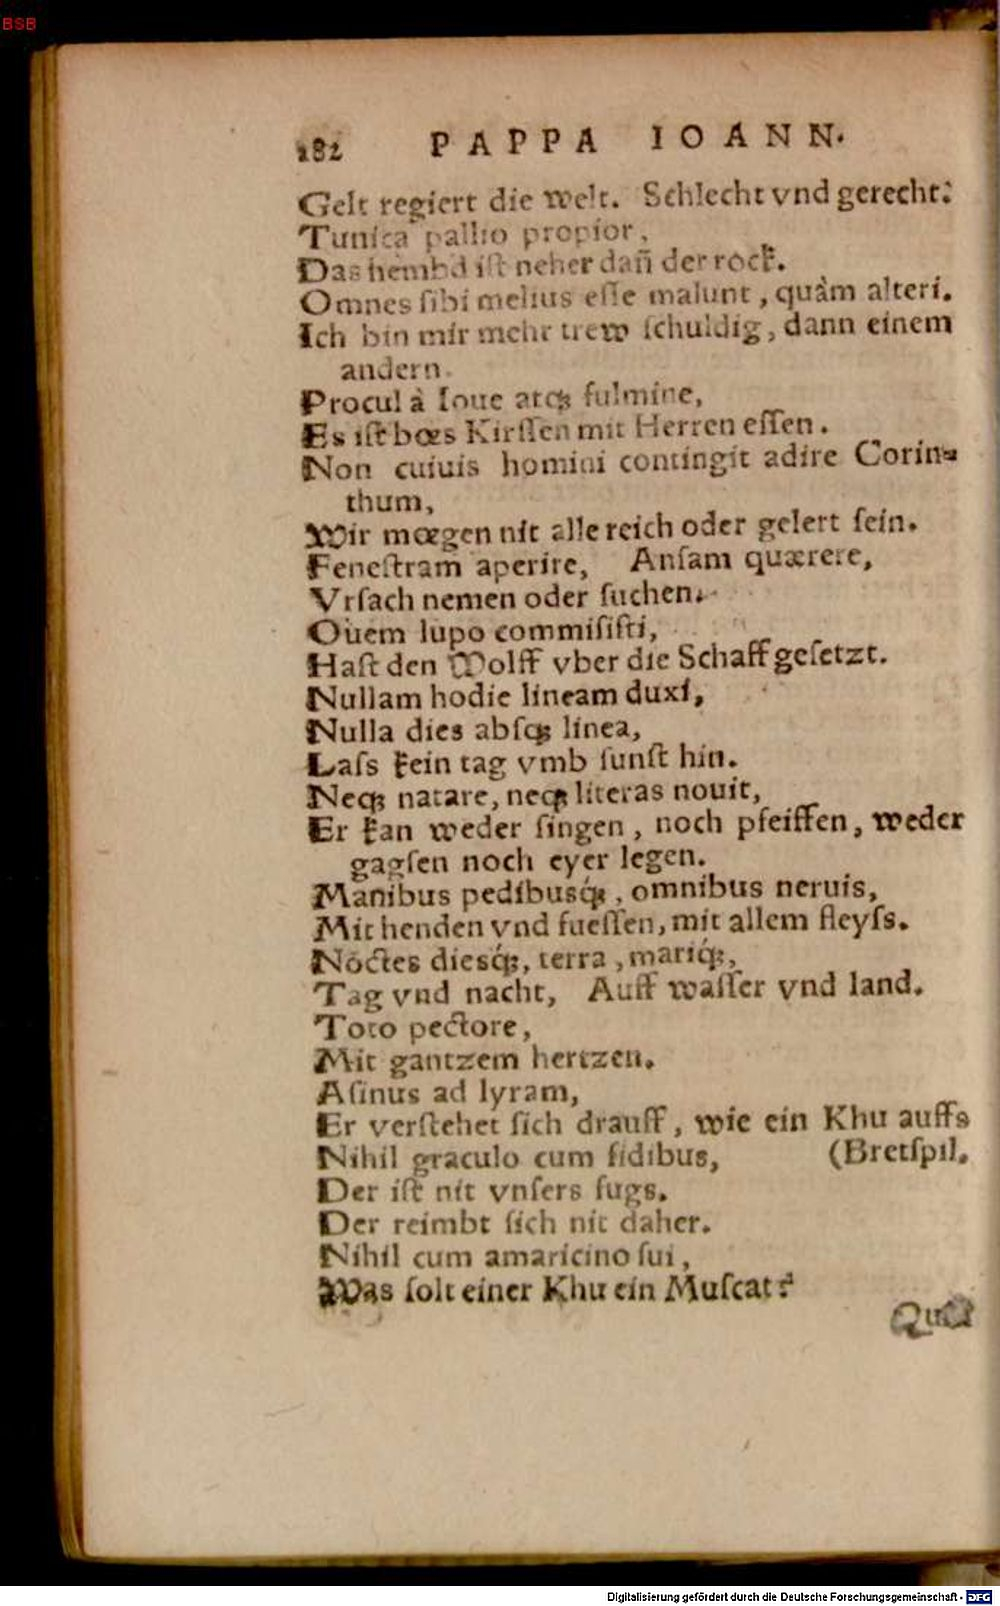 BSB
182 PAPPA IOANN.
Gelt regiert die welt. Schlecht vnd gerecht.
Tunica pallio propior,
Das hembd iſt neher dañ der rock.
Omnes ſibi melius eſſe malunt, quàm alteri.
Ich bin mir mehr trew ſchuldig, dann einem
andern.
Procul à Ioue atqꝫ fulmine,
Es iſt bœs Kirſſen mit Herren eſſen.
Non cuiuis homini contingit adire Corin-
thum,
Wir mœgen nit alle reich oder gelert ſein.
Feneſtram aperire, Anſam quærere,
Vrſach nemen oder ſuchen.
Ouem lupo commiſiſti,
Haſt den Wolff vber die Schaff geſetzt.
Nullam hodie lineam duxi,
Nulla dies abſqꝫ linea,
Laſs kein tag vmb ſunſt hin.
Neqꝫ natare, neqꝫ literas nouit,
Er kan weder ſingen, noch pfeiffen, weder
gagſen noch eyer legen.
Manibus pedibusq́ꝫ, omnibus neruis,
Mit henden vnd fueſſen, mit allem fleyſs.
Noctes diesq́ꝫ, terra, mariq́ꝫ,
Tag vnd nacht, Auff waſſer vnd land.
Toto pectore,
Mit gantzem hertzen.
Aſinus ad lyram,
Er verſtehet ſich drauff, wie ein Khu auffs
Nihil graculo cum fidibus, (Bretſpil.
Der iſt nit vnſers fugs.
Der reimbt ſich nit daher.
Nihil cum amaricino ſui,
Was ſolt einer Khu ein Muſcat?
Digitalisierung gefördert durch die Deutsche Forschungsgemeinschaft - DFG